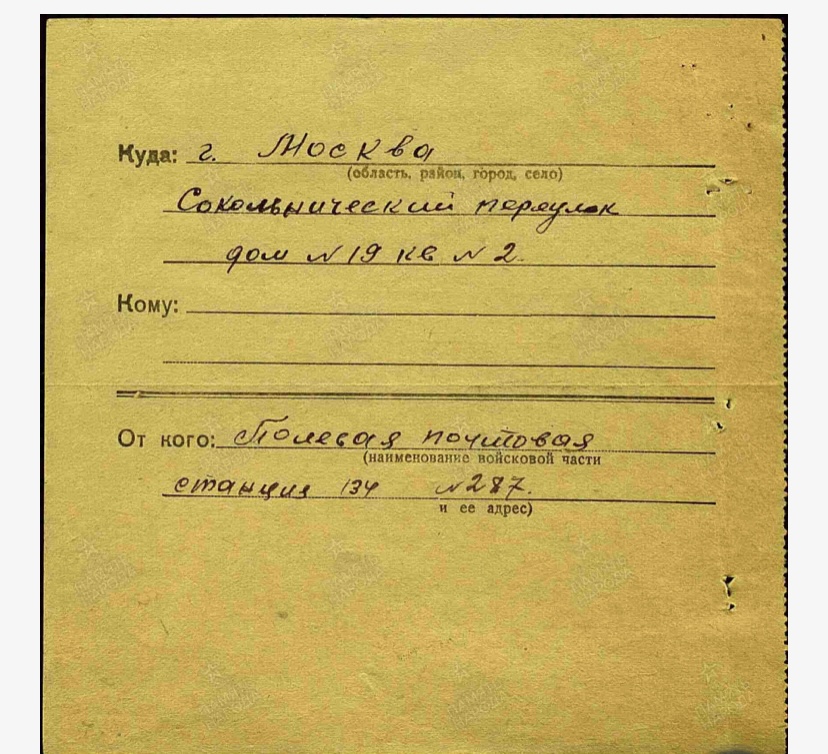 Куда: г. Москва
(область, район, город, село)
Сокольнический переулок
дом N 19 кв N 2.
Кому:
От кого: Полевая почтовая
(наименование войсковой части
станция 134 N 287.
и ее адрес)